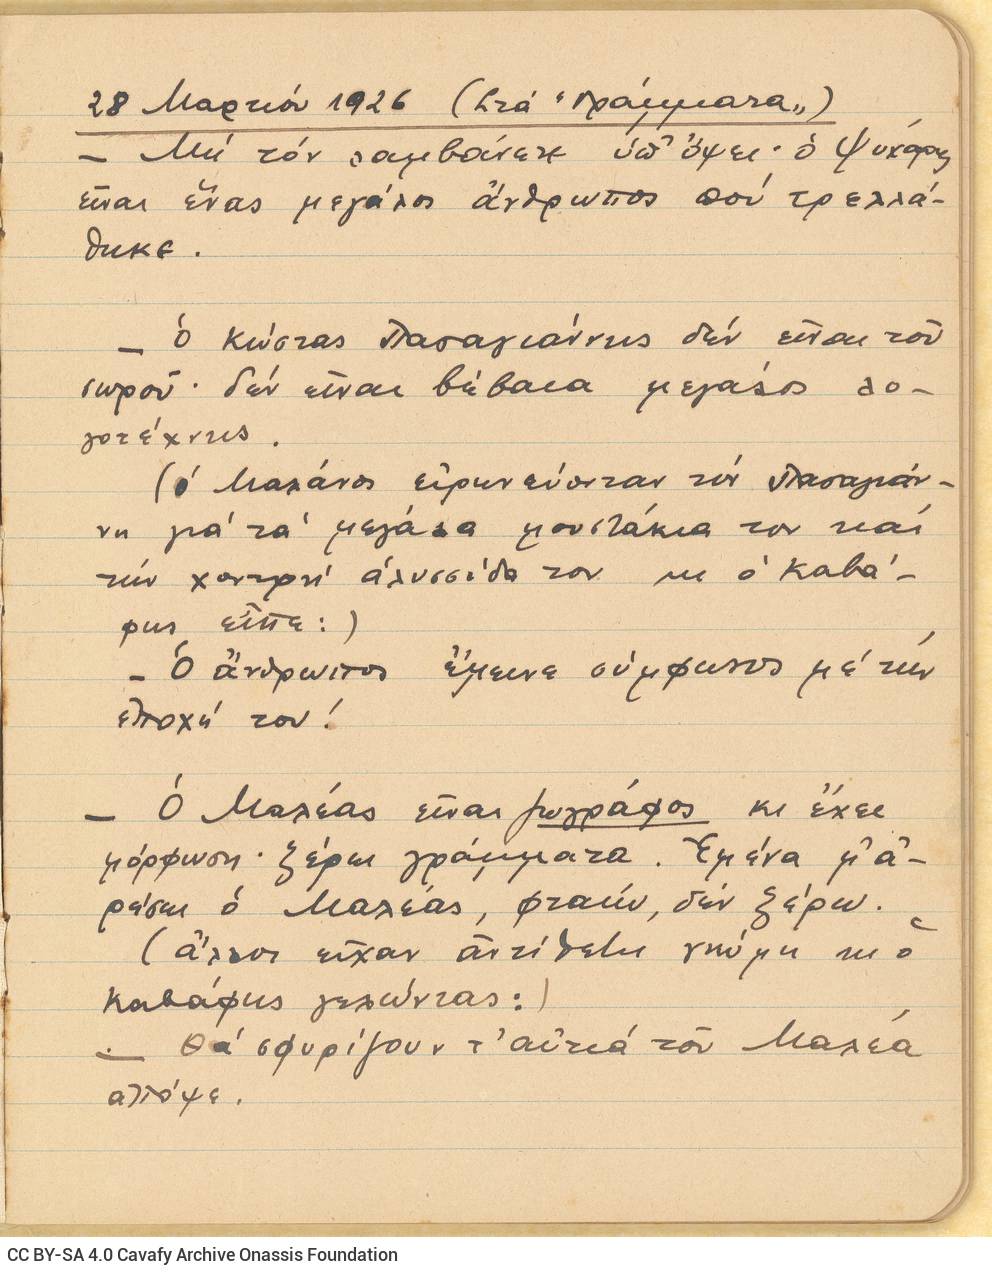 28 Μαρτιόυ 1926 (Στά "Γράμματα„)
— Μή τόν λαμβάνετε ὑπ' ὄψει· ὁ Ψυχάρης
εἶναι ἕνας μεγάλος ἄνθρωπος πού τρελλά-
θηκε.
— ὁ Κώστας Πασαγιάννης δέν εἶναι τοῦ
σωροῦ· δέν εἶναι βέβαια μεγάλος λο-
γοτέχνης.
(ὁ Μαλάνος εἰρωνεύονταν τόν Πασαγιάν-
νη γιά τά μεγάλα μουστάκια του καί
τήν χοντρή ἁλυσσίδα του κι ὁ Καβά-
φης εἶπε:)
— Ὁ ἄνθρωπος ἔμεινε σύμφωνος μέ τήν
ἐποχή του!
— Ὁ Μαλέας εἶναι ζωγράφος κι ἔχει
μόρφωση· ξέρει γράμματα. Ἐμένα μ' ἀ-
ρέσει ὁ Μαλέας, φταίω, δέν ξέρω.
(ἄλλοι εἶχαν ἀντίθετη γνώμη κι ὁ
Καβάφης γελώντας:)
— Θά σφυρίζουν τ' αὐτιά τοῦ Μαλέα
ἀπόψε.
CC BY-SA 4.0 Cavafy Archive Onassis Foundation